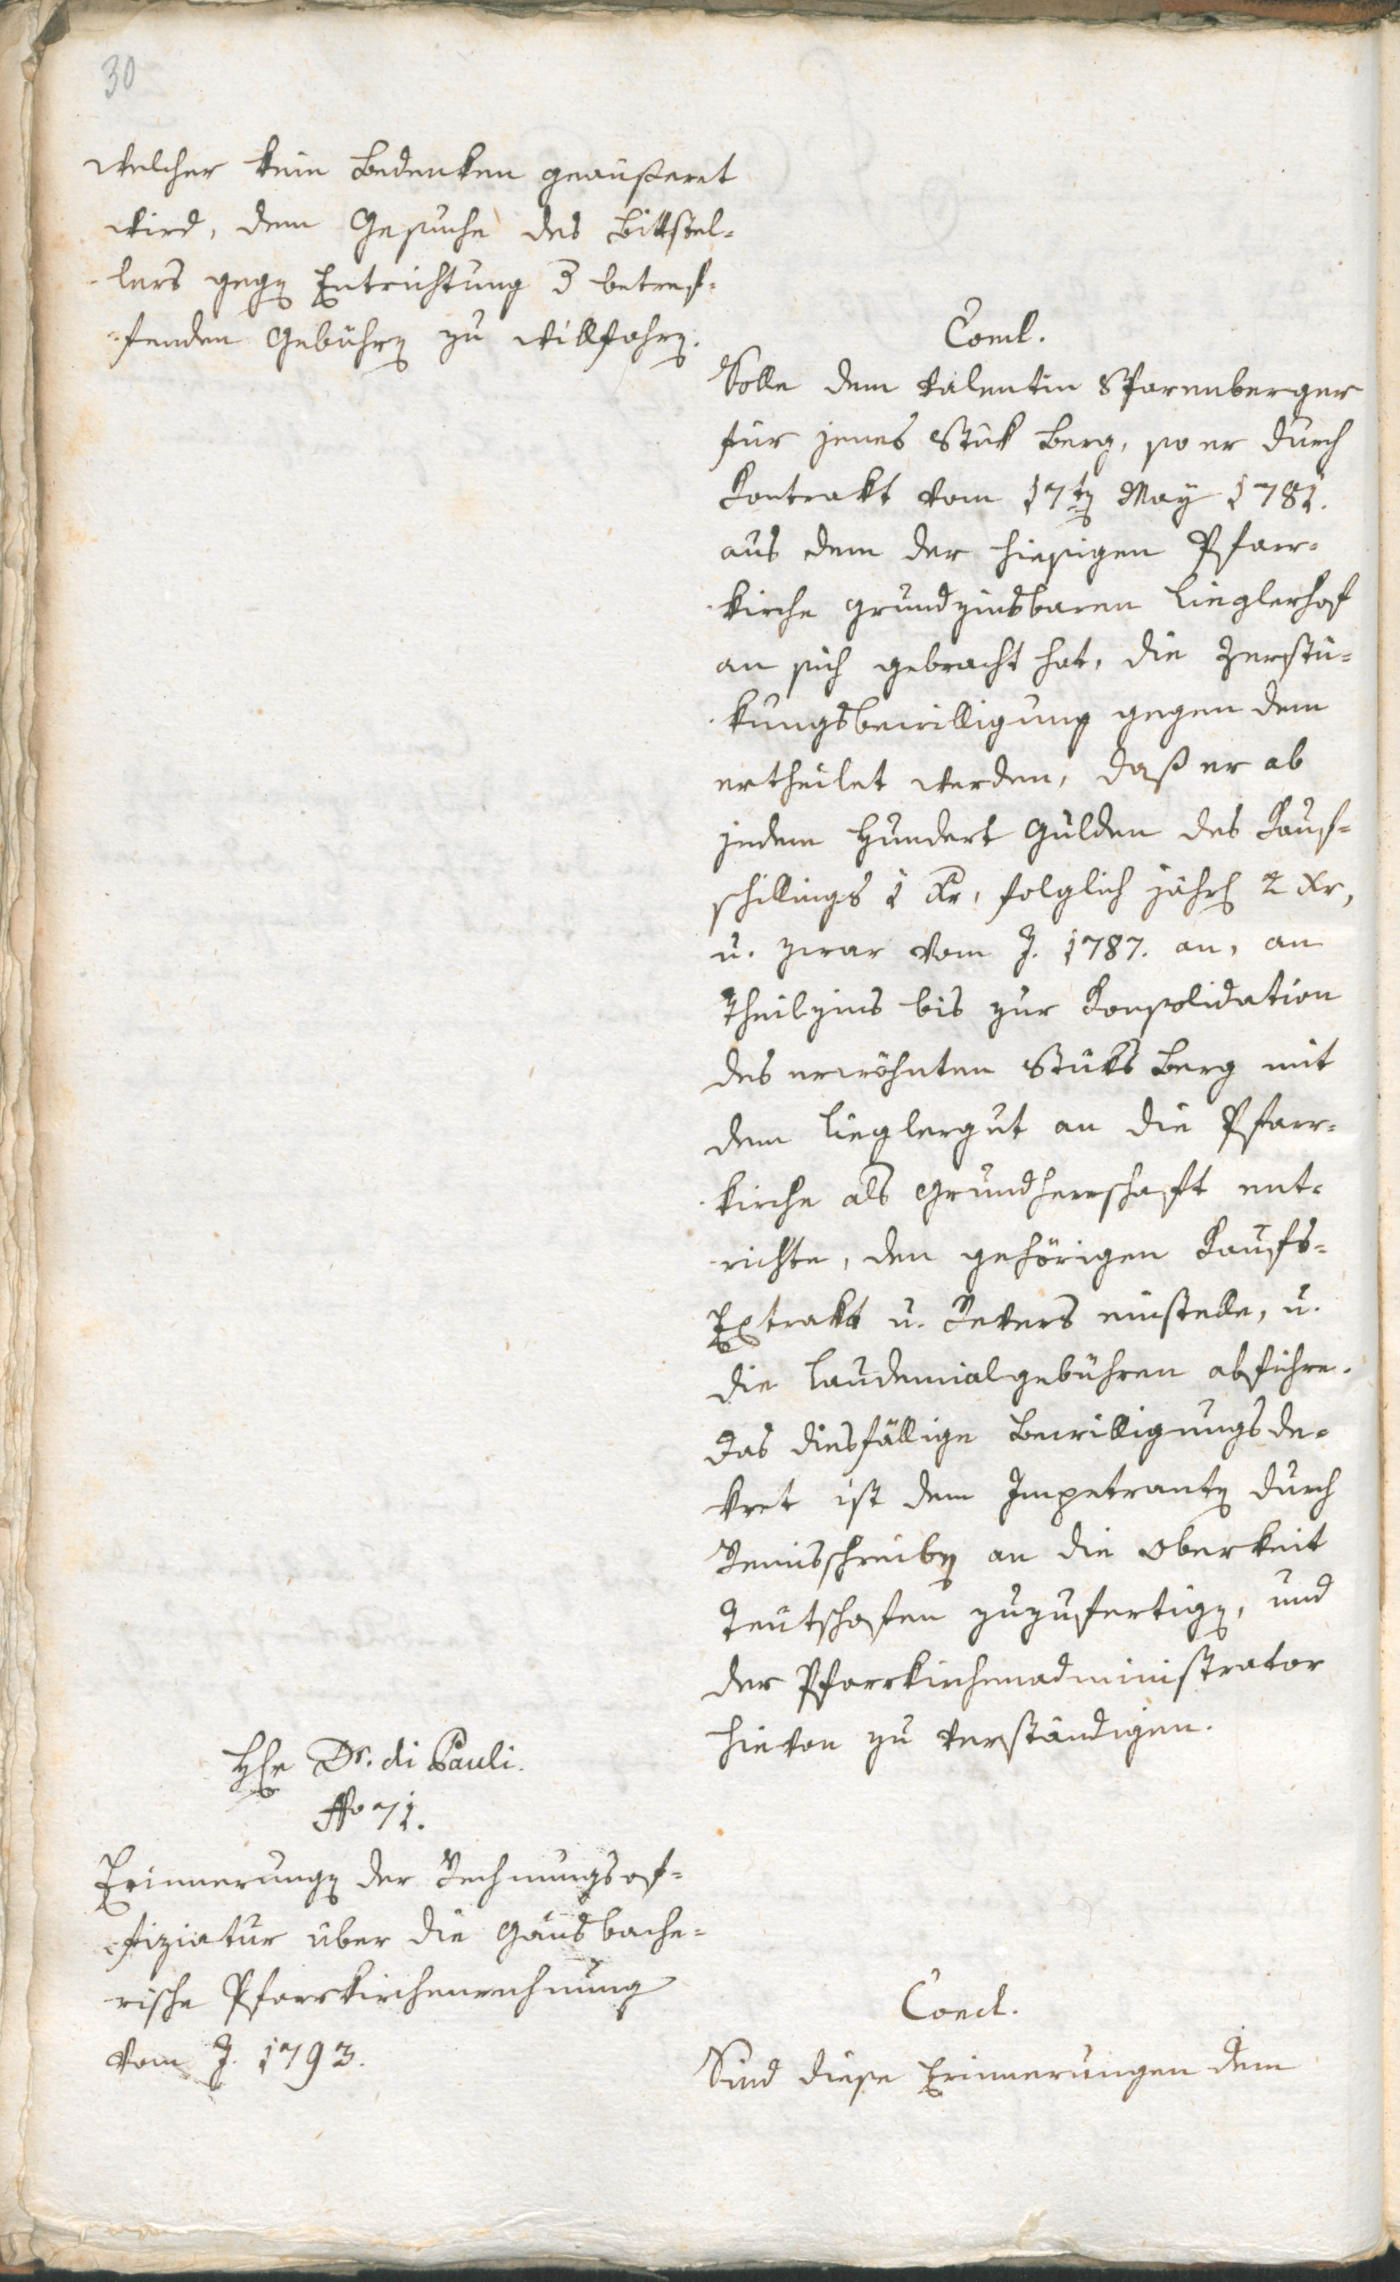 30
welcher kein Bedenken geäussert
wird, dem Gesuche des Bittstel-
lers gegen Entrichtung d betref-
fenden Gebühren zu willfahren.
Concl.
Solle dem Valentin Sparenberger
für jenes Stük Berg, so er durch
Kontrakt vom 17ten May 1781.
aus dem der hiesigen Pfarr-
kirche grundzinsbaren Zieglerhof
an sich gebracht hat, die Zerstü-
kungsbewilligung gegen dem
ertheilet werden, daß er ab
jedem Hundert Gulden des Kauf-
schillings 1 Kr, folglich jährl 2 Kr,
u. zwar vom J. 1787. an, an
Theilzins bis zur Konsolidation
des erwöhnten Stüks Berg mit
dem Zieglergut an die Pfarr-
kirche als Grundherrschaft ent-
richte, den gehörigen Kaufs-
Extrakt u. Revers einstelle, u.
die Laudemialgebühren abführe.
Das diesfällige Bewilligungsde-
kret ist dem Impetranten durch
Remisschreiben an die Oberkeit
Teutschofen zuzufertigen, und
der Pfarrkirchenadministrator
hievon zu verständigen.
Hr Dr. di Pauli.
No 71.
Erinnerungen der Rechnungsof-
fiziatur über die Gänsbache-
rische Pfarrkirchenrechnung
vom J. 1793.
Concl.
Sind diese Erinnerungen dem